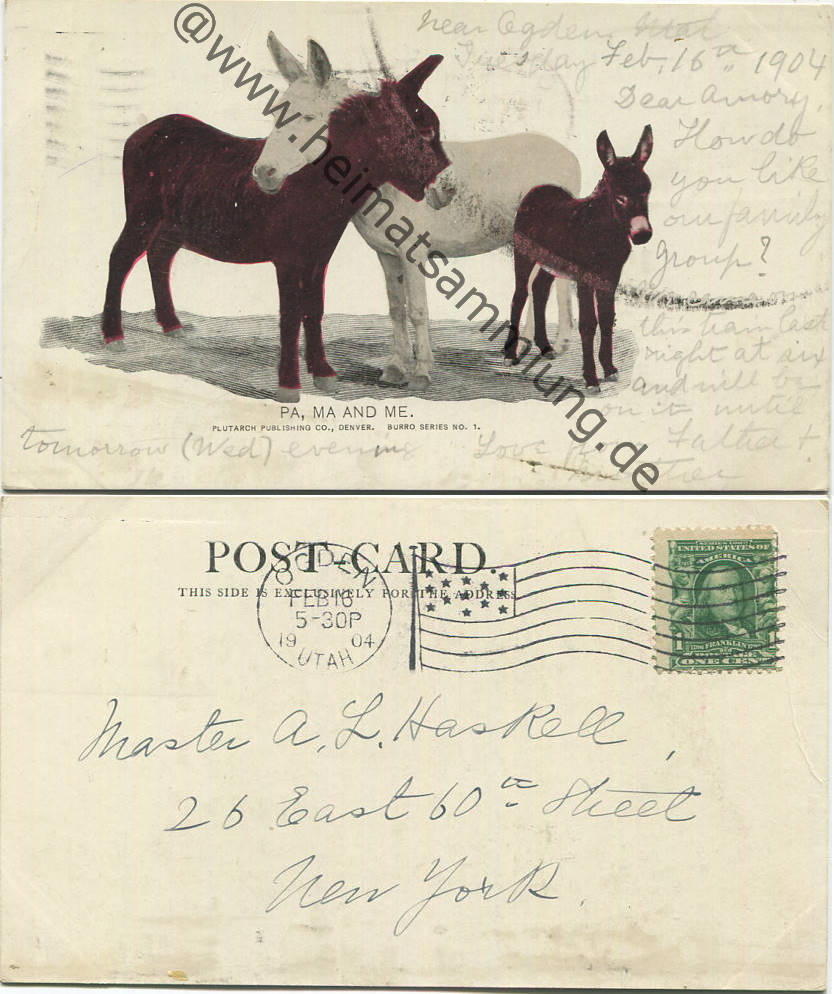 Near Ogden, Utah
Tuesday Feb, 16th 1904
Dear Amory,
How do
you like
our family
group?
this train last
night at six
and will be
on it until
tomorrow (Wed) evening Love from Father &
Mother
PA, MA AND ME.
PLUTARCH PUBLISHING CO., DENVER. BURRO SERIES NO. 1.
@www.heimatsammlung.de
POST-CARD.
THIS SIDE IS EXCLUSIVELY FOR THE ADDRESS
OGDEN
FEB 16
5-30P
19 04
UTAH
SERIES 1902
UNITED STATES OF
AMERICA
1 FRANKLIN 1
ONE CENT
Master A. L. Haskell,
26 East 60th Street
New York.